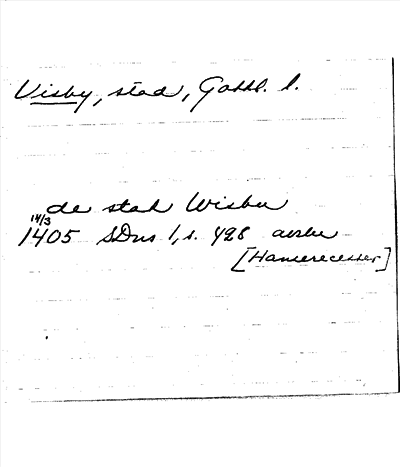 Visby, stad, Gottl. l.
de stad Wisbu
14/3
1405 SDns 1, s. 428 avskr
[Hanserecesser]